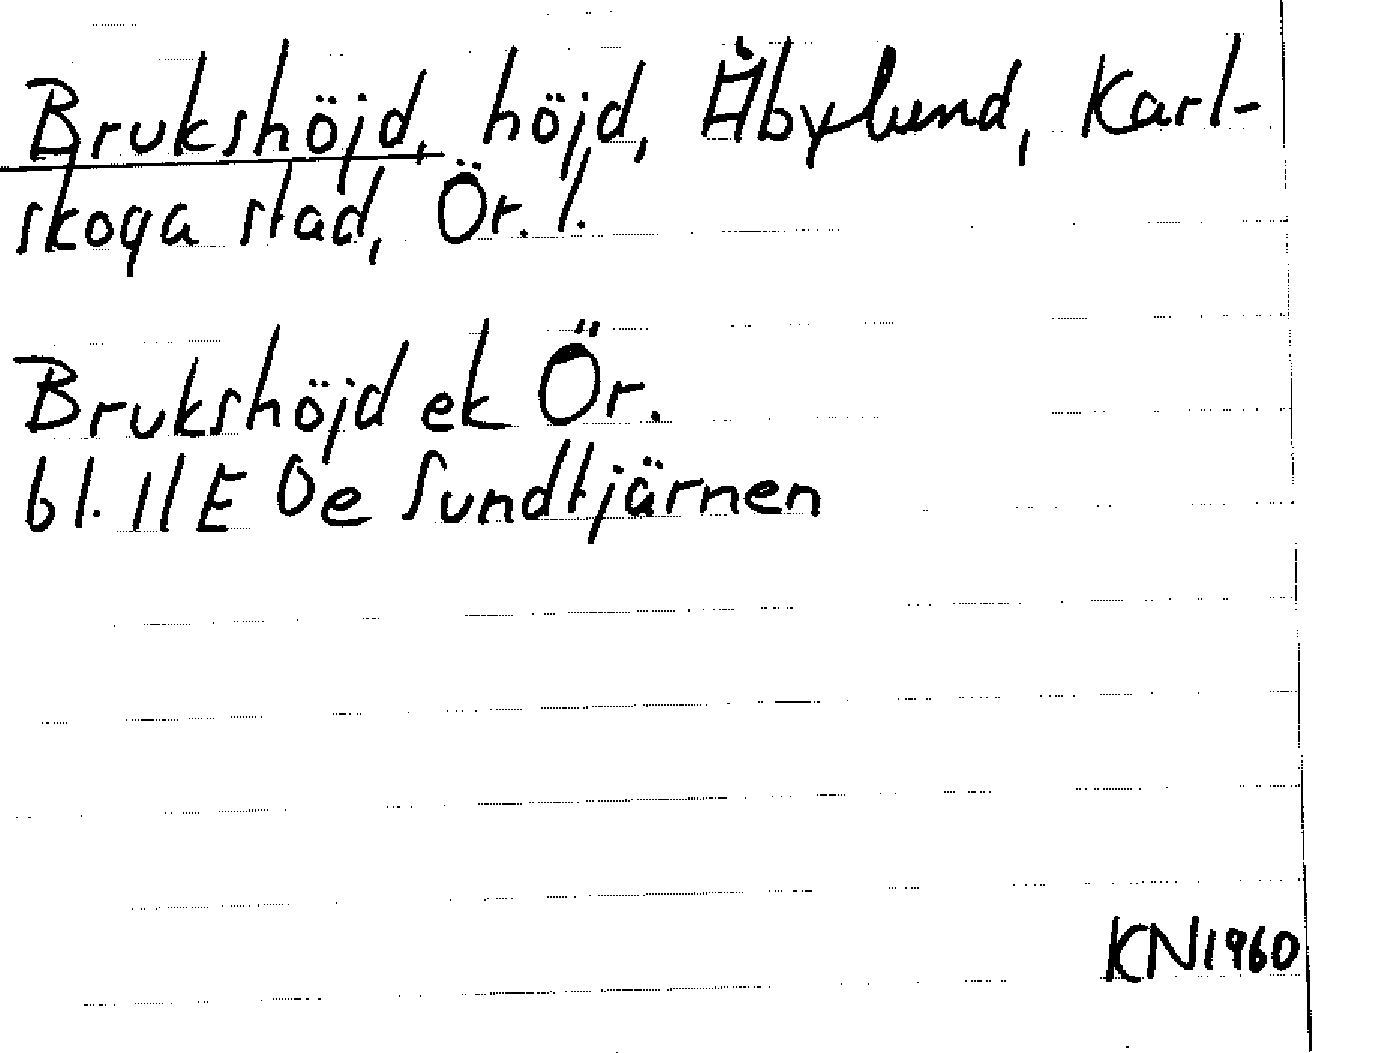 Brukshöjd, höjd, Åbylund, Karl-
skoga stad, Ör. l.
Brukshöjd ek Ör.
bl. 11E Öe Sundtjärnen
KN1960